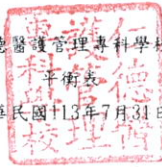 德醫護管理專科學校
平衡表
華民國113年7月31日